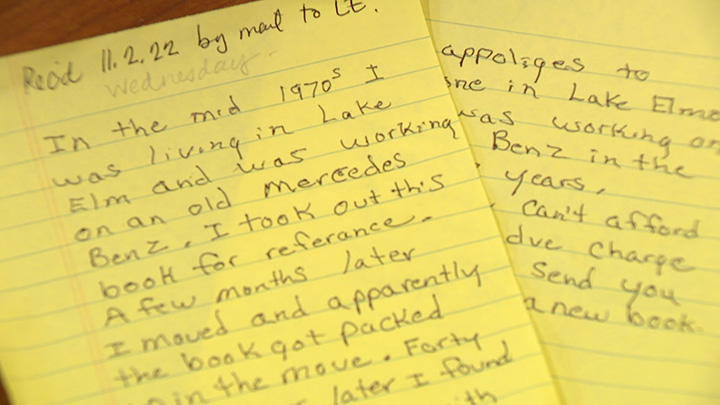 Rec'd 11.2.22 by mail to LE.
Wednesday
In the mid 1970s I
was living in Lake
Elm and was working
on an old mercedes
Benz. I took out this
book for referance.
A few months later
I moved and apparently
the book got packed
in the move. Forty
later I found
with
appoliges to
in Lake Elmo
was working on
Benz in the
years,
can't afford
due charge
Send you
a new book.